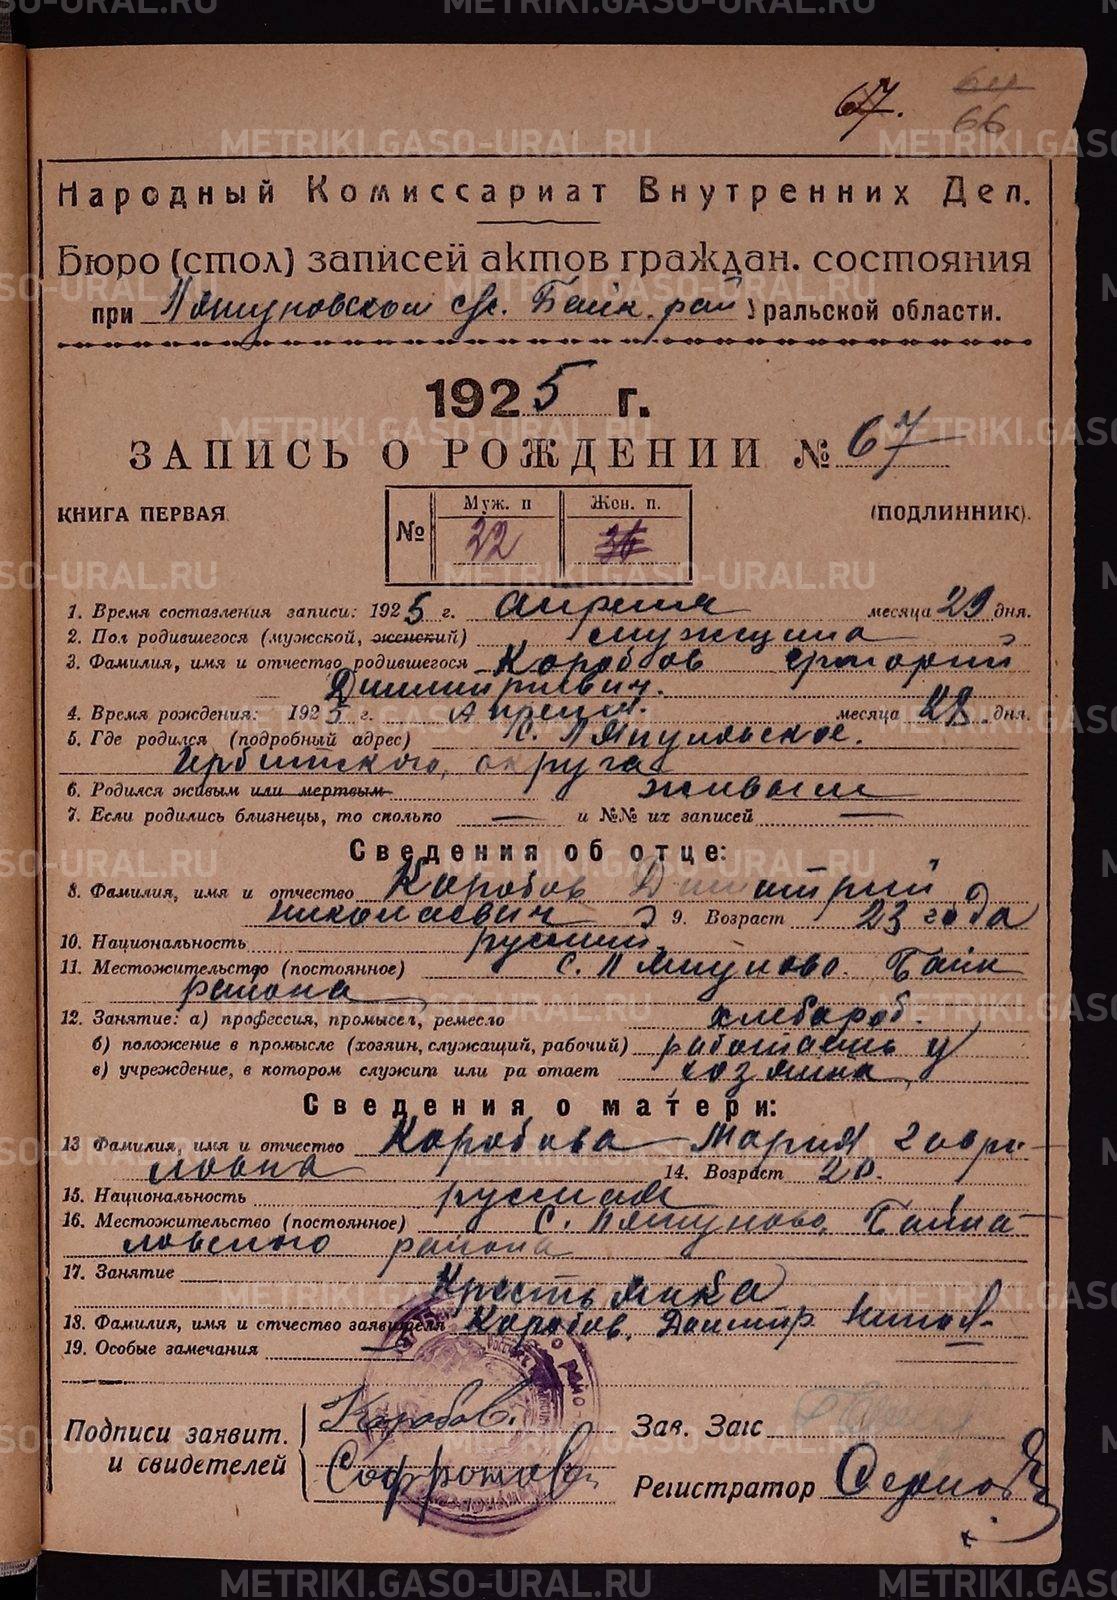 67. 64
66
Народный Комиссариат Внутренних Дел.
Бюро (стол) записей актов граждан. состояния
при Уральской области.
1925 г.
ЗАПИСЬ О РОЖДЕНИИ № 67
КНИГА ПЕРВАЯ (ПОДЛИННИК).
№ Муж. п Жен. п.
22 36
1. Время составления записи: 1925 г. апреля месяца 29 дня.
2. Пол родившегося (мужской, женский) мужщина
3. Фамилия, имя и отчество родившегося Коробов
Димитриевич.
4. Время рождения: 1925 г. апреля. месяца 28 дня.
5. Где родился (подробный адрес) с.
Ирбитского, округа
6. Родился живым или мертвым живым
7. Если родились близнецы, то сколько — и №№ их записей —
Сведения об отце:
8. Фамилия, имя и отчество Коробов Димитрий
николаевич 9. Возраст 23 года
10. Национальность русский.
11. Местожительство (постоянное) с. Байк
района
12. Занятие: а) профессия, промысел, ремесло хлебороб.
б) положение в промысле (хозяин, служащий, рабочий) работаеть у
в) учреждение, в котором служит или ра отает хозяина
Сведения о матери:
13 Фамилия, имя и отчество Коробова Мария гаври-
ловна 14. Возраст 20.
15. Национальность русская
16. Местожительство (постоянное) с. Байка-
ловского района
17. Занятие
Крестьянка
18. Фамилия, имя и отчество заявителя Коробов. Димитр Никол-
19. Особые замечания —
Подписи заявит. Коробов. Зав. Загс
и свидетелей Регистратор
METRIKI.GASO-URAL.RU